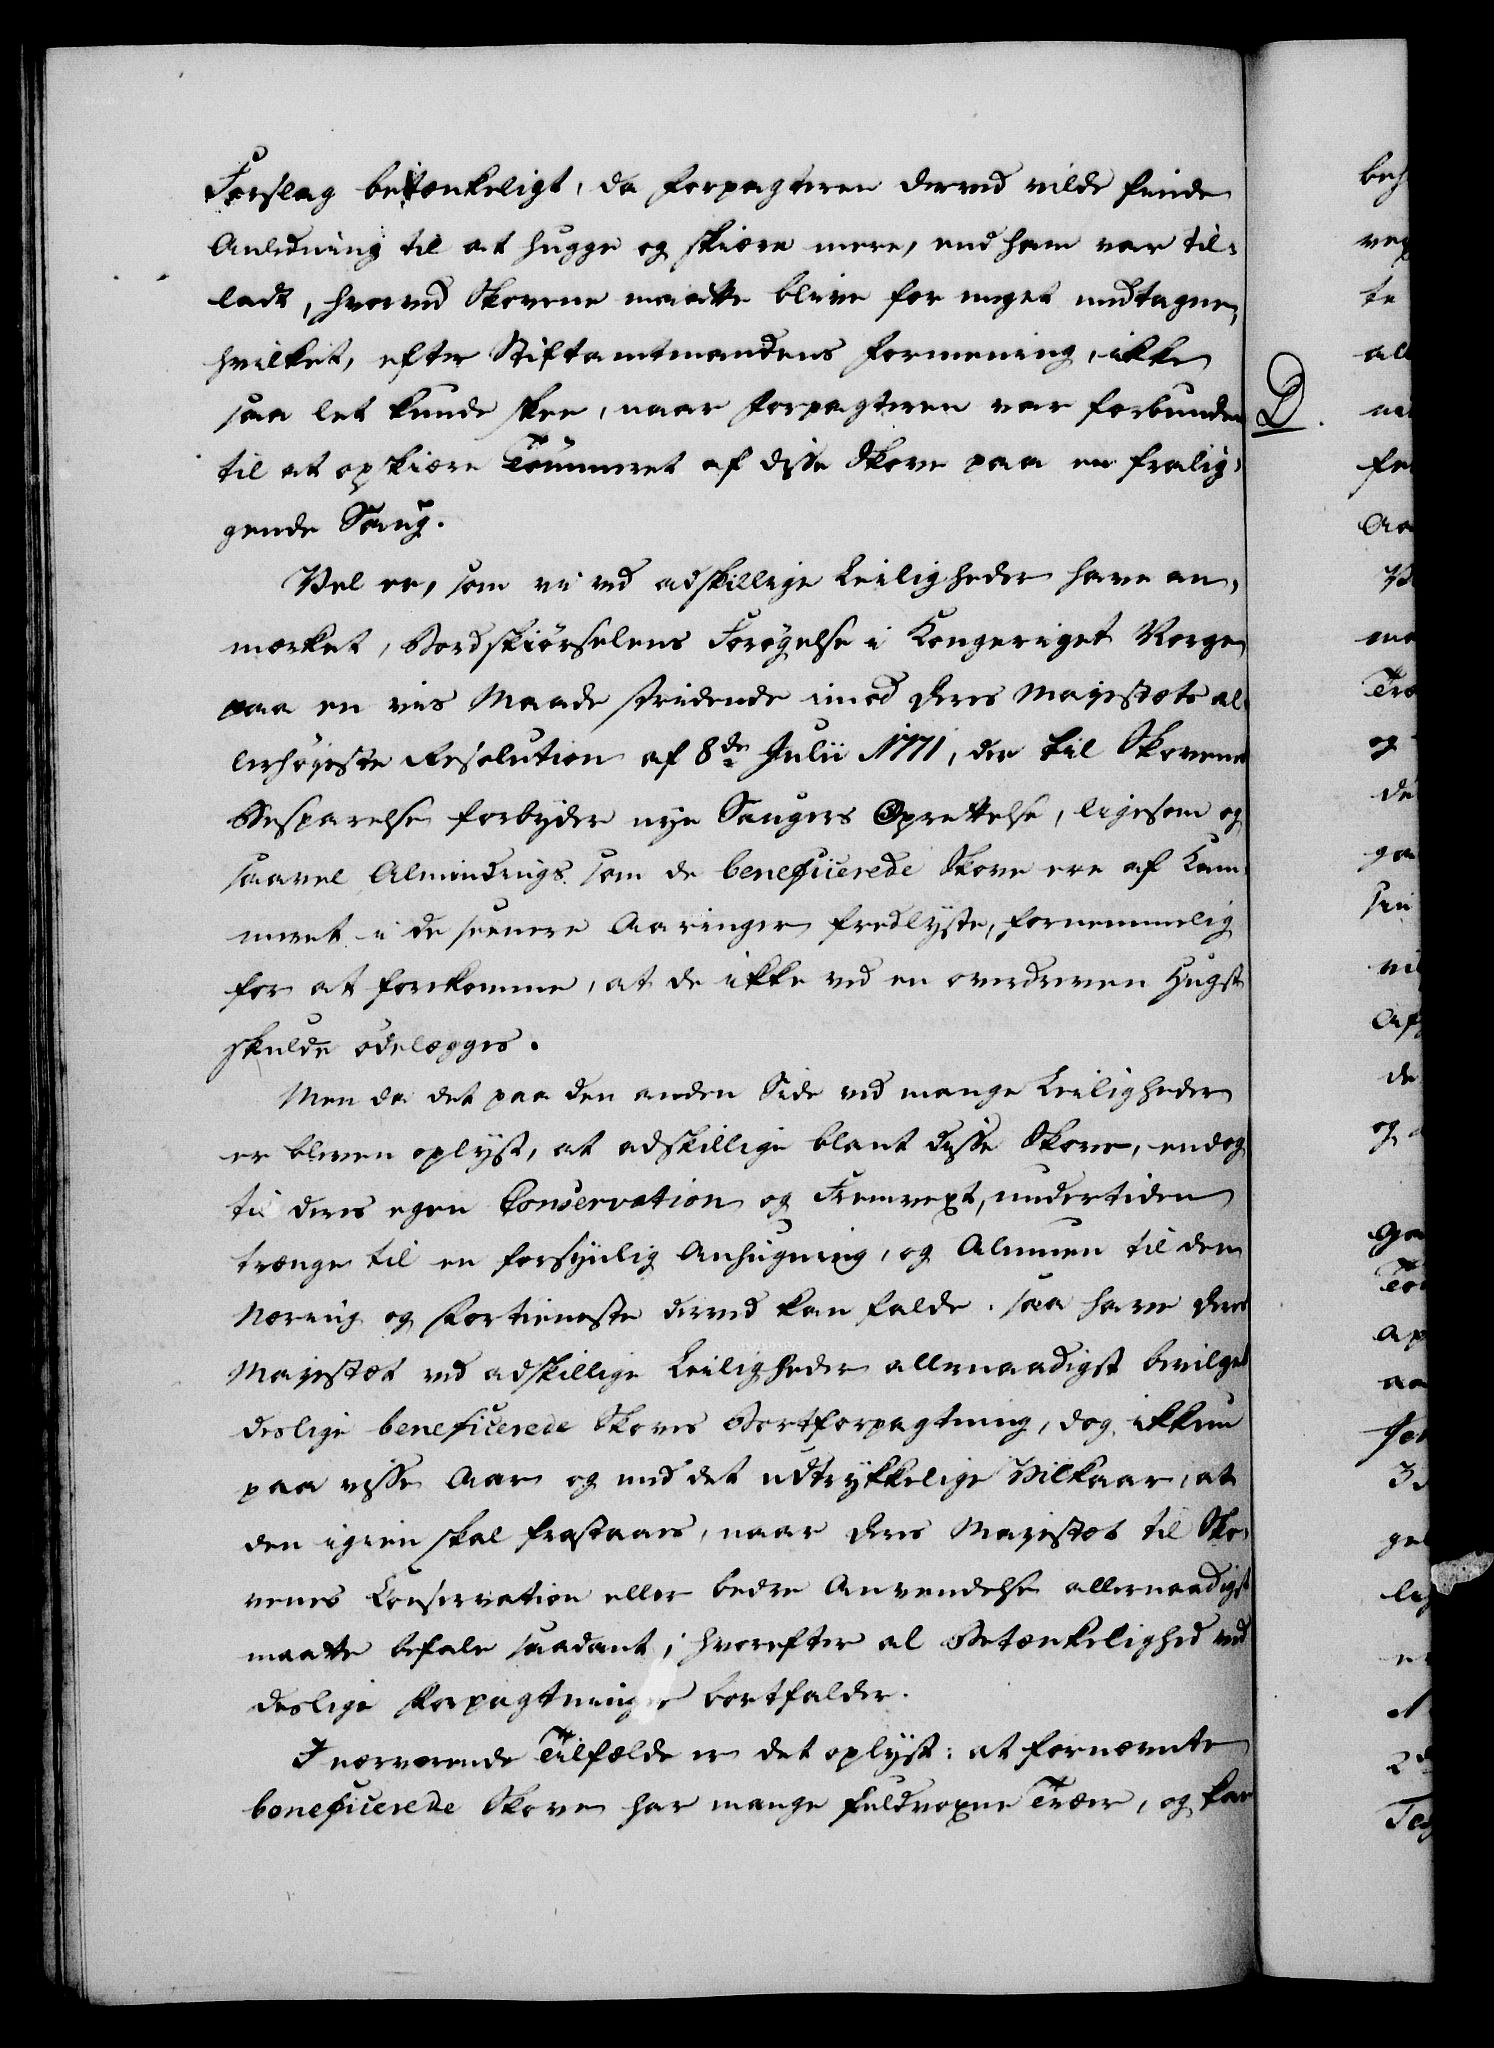 Forslag betænkeligt, da Forpagteren derved vilde finde
Anledning til at hugge og skiære mere, end ham var til-
ladt, hvorved Skovene maatte blive for meget medtagne,
hvilket, efter Stiftamtmandens Formening, ikke
saa let kunde skee, naar Forpagteren var forbunden
til at opskiære Tömmeret af disse Skove paa en fralig-
gende Saug.
Vel er, som vi ved adskillige Leiligheder have an-
mærket, Bordskiörselens Forøgelse i Kongeriget Norge
paa en vis Maade stridende imod Deres Majestæts al-
lerhöyeste Resolution af 8de Julii 1771, der til Skovenes
Besparelse forbyder nye Saugers Oprettelse, ligesom og
saavel Almindings som de beneficerede Skove ere af Kam-
meret i de seenere Aaringer fredlyste, fornemmelig
for at forekomme, at de ikke ved en overdreven Hugst
skulde ödelægges.
Men da det paa den anden Side ved mange Leiligheder
er bleven oplyst, at adskillige blant disse Skove, endog
til deres egen Conservation og Fremvext, undertiden
trænge til en forsynlig Anhugning, og Almuen til den
Næring og Fortieneste derved kan falde, saa have Deres
Majestæt ved adskillige Leiligheder allernaadigst bevilget
deslige beneficerede Skoves Bortforpagtning, dog ikkun
paa visse Aar og med det udtrykkelige Vilkaar, at
den igien skal fratræs, naar Deres Majestæt til Sko-
venes Conservation eller bedre Anvendelse allernaadigst
maatte befale saadant; hvorefter al Betænkelighed ved
deslige Forpagtninger bortfalder.
I nærværende Tilfælde er det oplyst: at fornævnte
beneficerede Skove har mange fuldvoxne Træer, og kan
D.